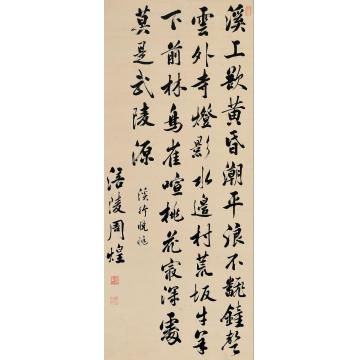 溪上黃昏潮平浪不翻鐘聲
雲外寺燈影水邊村荒坂牛羊
下前林鳥雀喧桃花冣深處
莫是武陵源
溪行晚眺
涪陵周煌